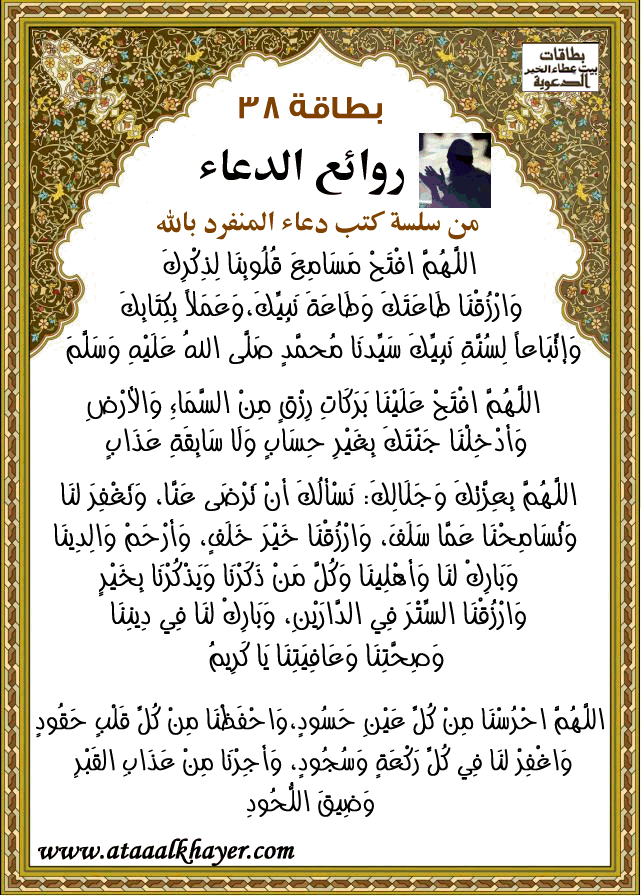 بطاقات
بيت عطاء الخير
الدعوية
بطاقة ٣٨
روائع الدعاء
من سلسة كتب دعاء المنفرد بالله
اللَّهُمَّ افْتَحْ مَسَامِعَ قُلُوبِنَا لِذِكْرِكَ
وَارْزُقْنَا طَاعَتَكَ وَطَاعَةَ نَبِيِّكَ،وَعَمَلاً بِكِتَابِكَ
وَإتِّبَاعاً لِسُنَّةِ نَبِيِّكَ سَيِّدنَا مُحمَّدٍ صَلَّى اللهُ عَلَيْهِ وَسَلَّمَ
اللَّهُمَّ افْتَحْ عَلَيْنَا بَرَكَاتِ رِزْقٍ مِنْ السَّمَاءِ وَالأَرْضِ
وَأدْخِلْنَا جَنّتَكَ بِغَيْرِ حِسَابٍ وَلَا سَابِقَةِ عَذَابٍ
اللَّهُمَّ بِعِزَّتِكَ وَجَلَالِكَ: نَسْألُكَ أنْ تَرْضَى عَنَّا، وَتَغْفِرَ لَنَا
وَتُسَامِحْنَا عَمَّا سَلَفَ، وَارْزُقْنَا خَيْرَ خَلَفٍ، وَأرْحَمْ وَالِدِينَا
وَبَارِكْ لَنَا وَأهْلِينَا وَكُلَّ مَنْ ذَكَرْنَا وَيَذْكُرْنَا بِخَيْرٍ
وَارْزُقْنَا السِّتْرَ فِي الدَّارَيْنِ، وَبَارِكْ لَنَا فِي دِينِنَا
وَصِحَّتِنَا وَعَافِيَتِنَا يَا كَرِيمُ
اللَّهُمَّ احْرُسْنَا مِنْ كُلِّ عَيْنِ حَسُودٍ،وَاحْفَظْنَا مِنْ كُلِّ قَلْبٍ حَقُودٍ
وَاغْفِرْ لَنَا فِي كُلِّ رَكْعَةٍ وَسُجُودٍ، وَأجِرْنَا مِنْ عَذَابِ القَبْرِ
وَضِيقَ اللُّحُودِ
www.ataaalkhayer.com